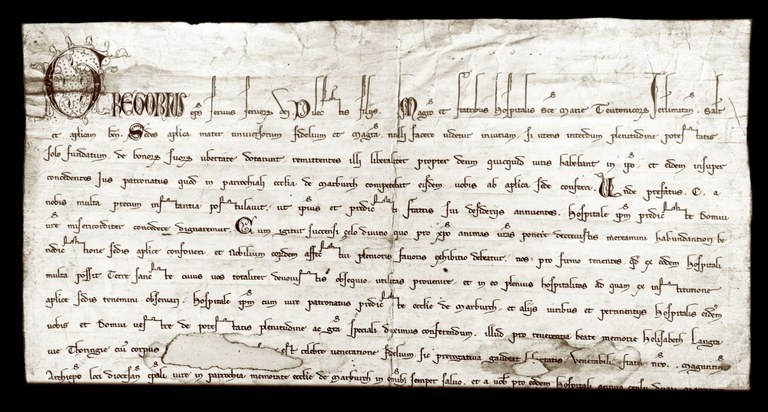 GREGORIUS eps seruus seruorz dei Dilectis filijs. Magro et fratribus Hospitalis sce Marie Teutonicorz Ierlimitan. Salt
et aplicam ben. Sedes aplica mater uniuersorum fidelium et magra nulli facere uidetur iniuriam si utens interdum plenitudine potestatis
solo fundatum, de bonorz suorz ubertate dotarunt remittentes illi liberaliter propter deum quicquid iuris habebant in ipo. et eidem insuper
concedentes Ius patronatus quod in parrochiali ecclia de marburch competebat eisdem. uobis ab aplica sede conferri. Unde prefatus. C. a
nobis multa precum instantia postulauit. ut ipius et predicti fratris sui desiderijs annuentes. Hospitale ipm predicte domui
ure misericorditer concedere dignaremur. Cum igitur succensi zelo diuino quo pro xpo animas uras ponere decreuistis mereamini habundantion be
nedictione sedis aplice confoueri et nobilium eorzdem affectui plenioris fauoris exhibitio debeatur. nos. pro firmo tenentes. qd ex eodem hospitali
multa possit Terre sancte cuius uos totaliter deuouistis obsequio. utilitas prouenire. et in eo plenius hospitalitas ad quam ex institutione
aplice sedis tenemini obseruari. Hospitale ipm cum iure patronatus predicte ecclie de Marburch. et alijs iuribus et pertinentijs Hospitalis eidem
uobis et domui uestre de potestatis plenitudine ac gra speciali duximus conferendum. illud pro reuerentia beate memorie Helisabeth Langra
uie Thoringie cui corpus est celebre ueneratione fidelium. sic prerogatiua gaudere libertatis. Venerabili fratri nro. maguntin
Archiepo loci diocesano epali iure in parrochia memorate ecclie de marburch in omib semper saluo. et a uob pro eodem hospitali annua